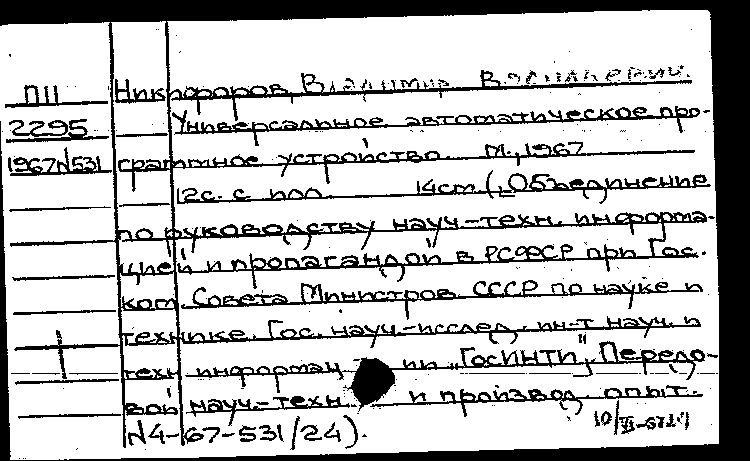 П11 Никифоров, Владимир Васильевич.
2295 Универсальное автоматическое про-
1967N531 граммное устройство. М., 1967
12с. с илл. 14см. („Объединение
по руководству науч.-техн. информа-
цией и пропагандой в РСФСР при Гос.
ком. Совета Министров СССР по науке и
технике. Гос. науч.-исслед. ин-т науч. и
техн. информац ии „ГосИНТИ", Передо-
вой науч.-техн. и производ. опыт.
N4-67-531/24).